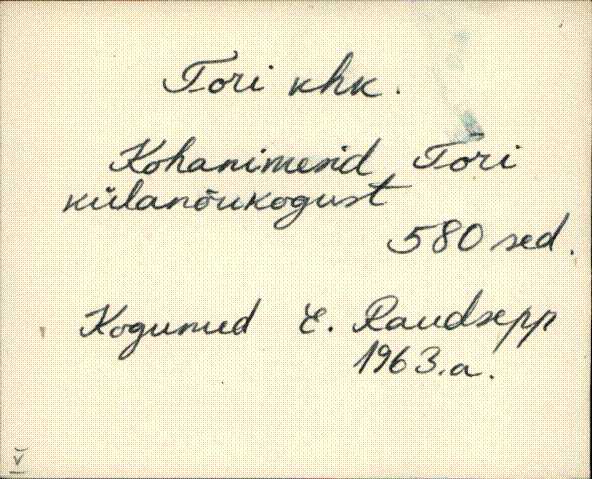 Tori khk.
Kohanimesid Tori
külanõukogust
580 sed.
Kogunud E. Raudsepp
1963.a.
V